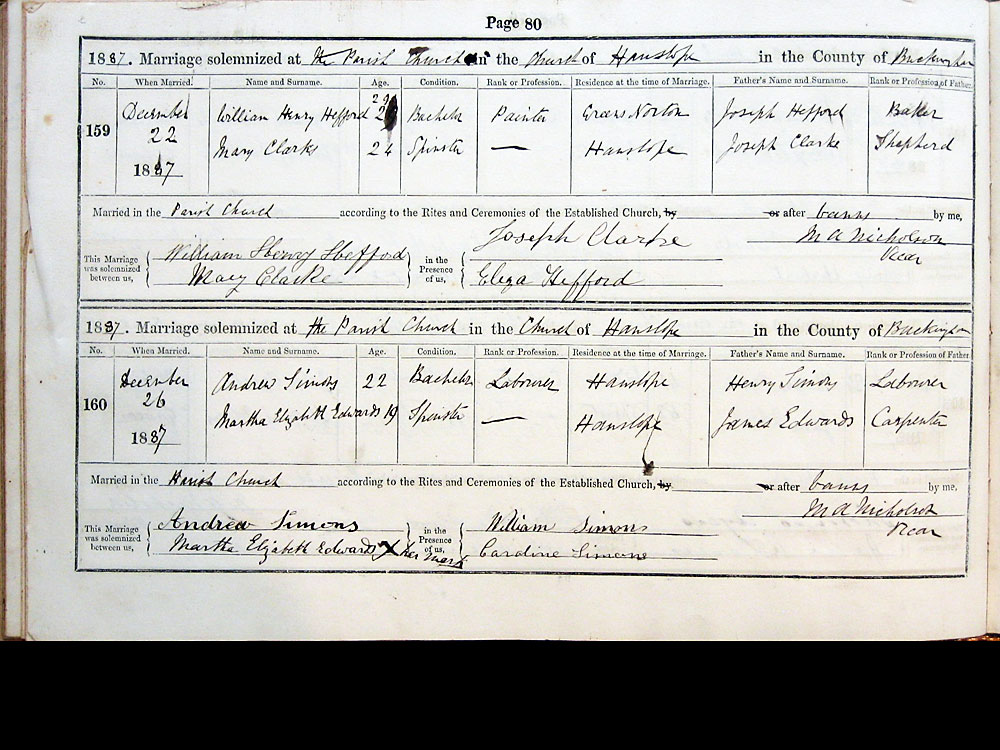 Page 80
1887. Marriage solemnized at the Parish Church in the Church of Hanslope in the County of Buckingham
No. When Married. Name and Surname. Age. Condition. Rank or Profession. Residence at the time of Marriage. Father's Name and Surname. Rank or Profession of Father.
159 December 22 1887 William Henry Hefford 29 Bachelor Painter Greens Norton Joseph Hefford Baker
Mary Clarke 24 Spinster — Hanslope Joseph Clarke Shepherd
Married in the Parish Church according to the Rites and Ceremonies of the Established Church, by or after banns by me,
M A Nicholson
Vicar
This Marriage was solemnized between us,
William Henry Hefford
Mary Clarke
in the Presence of us,
Joseph Clarke
Eliza Hefford
1887. Marriage solemnized at the Parish Church in the Church of Hanslope in the County of Buckingham
No. When Married. Name and Surname. Age. Condition. Rank or Profession. Residence at the time of Marriage. Father's Name and Surname. Rank or Profession of Father.
160 December 26 1887 Andrew Simons 22 Bachelor Labourer Hanslope Henry Simons Labourer
Martha Elizabeth Edwards 19 Spinster — Hanslope James Edwards Carpenter
Married in the Parish Church according to the Rites and Ceremonies of the Established Church, by or after banns by me,
M A Nicholson
Vicar
This Marriage was solemnized between us,
Andrew Simons
Martha Elizabeth Edwards X her mark
in the Presence of us,
William Simons
Caroline Simons